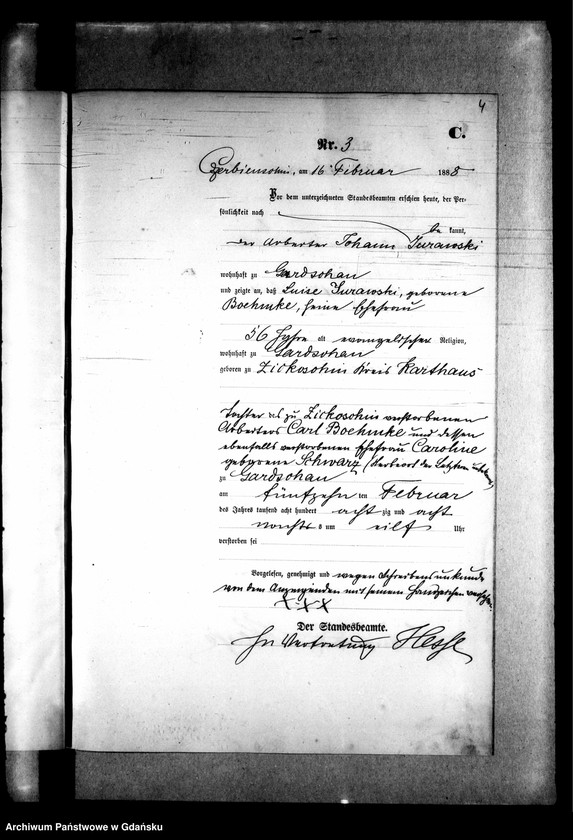 4
C.
Nr. 3
Czerbienschin, am 16 Februar 1888
Vor dem unterzeichneten Standesbeamten erschien heute, der Per-
sönlichkeit nach
be kannt,
der Arbeiter Johann Zurawski
wohnhaft zu Gardschau
und zeigte an, daß Luise Zurawski, geborene
Boehmke, seine Ehefrau
56 Jahre alt evangelischer Religion,
wohnhaft zu Gardschau
geboren zu Zickoschin Kreis Karthaus
Tochter des zu Zickoschin verstorbenen
Arbeiters Carl Boehmke und dessen
ebenfalls verstorbenen Ehefrau Caroline
geborene Schwarz der Letzten
zu Gardschau
am fünfzehn ten Februar
des Jahres tausend acht hundert acht zig und acht
nachts um eilf Uhr
verstorben sei
Vorgelesen, genehmigt und wegen Schreibensunkunde
von dem Anzeigenden mit seinem Handzeichen versehen.
XXX
Der Standesbeamte.
In Vertretung Hesse
Archiwum Państwowe w Gdańsku